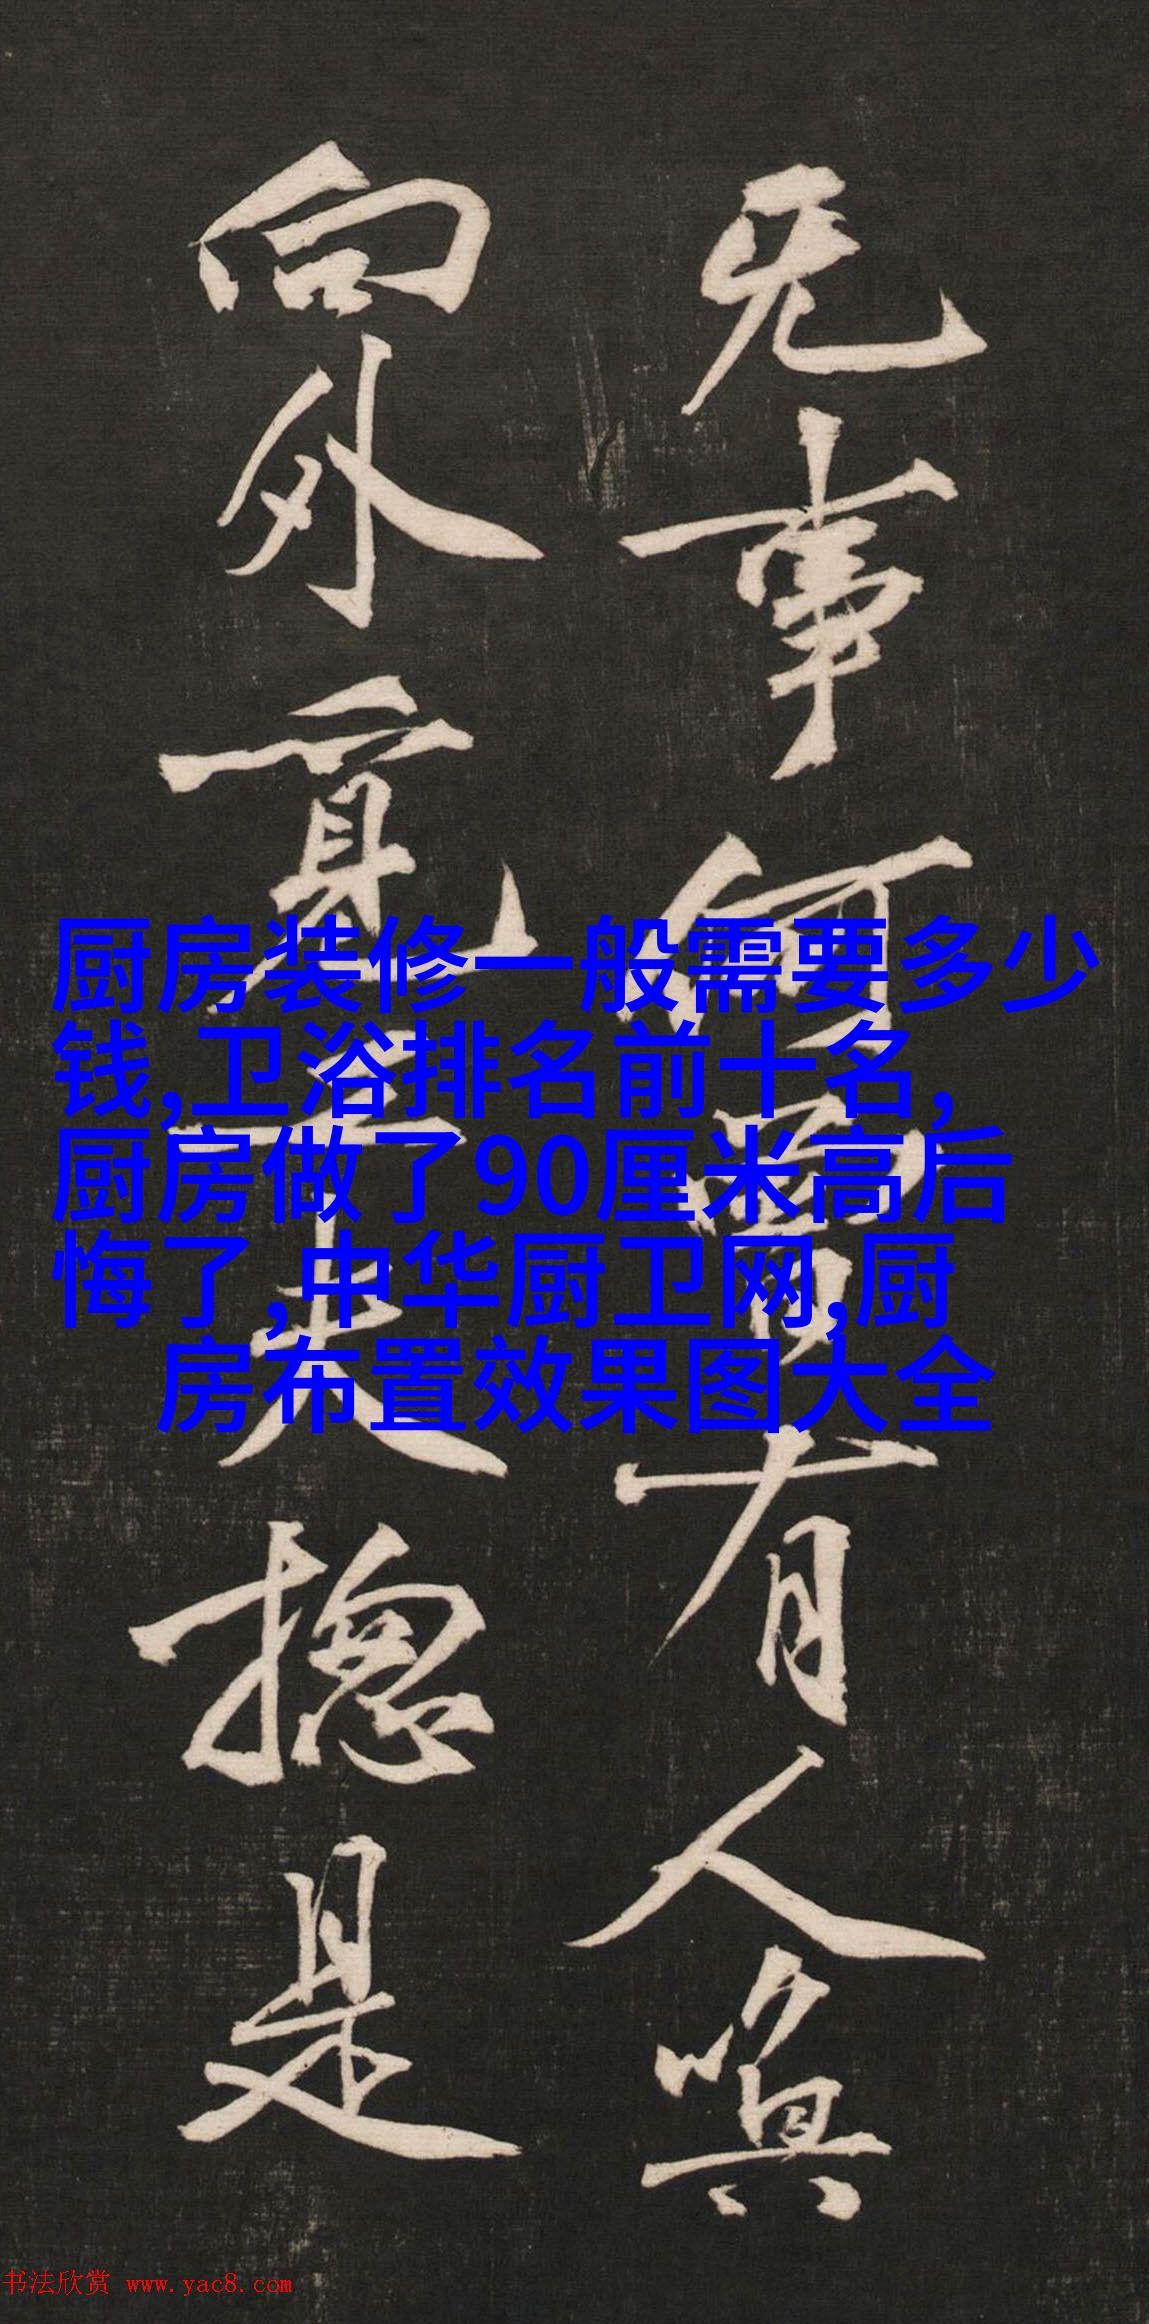 无事何有人
向外工夫摠是
厨房装修一般需要多少
钱,卫浴排名前十名,
厨房做了90厘米高后
悔了,中华厨卫网,厨
房布置效果图大全
书法欣赏 www.yac8.com